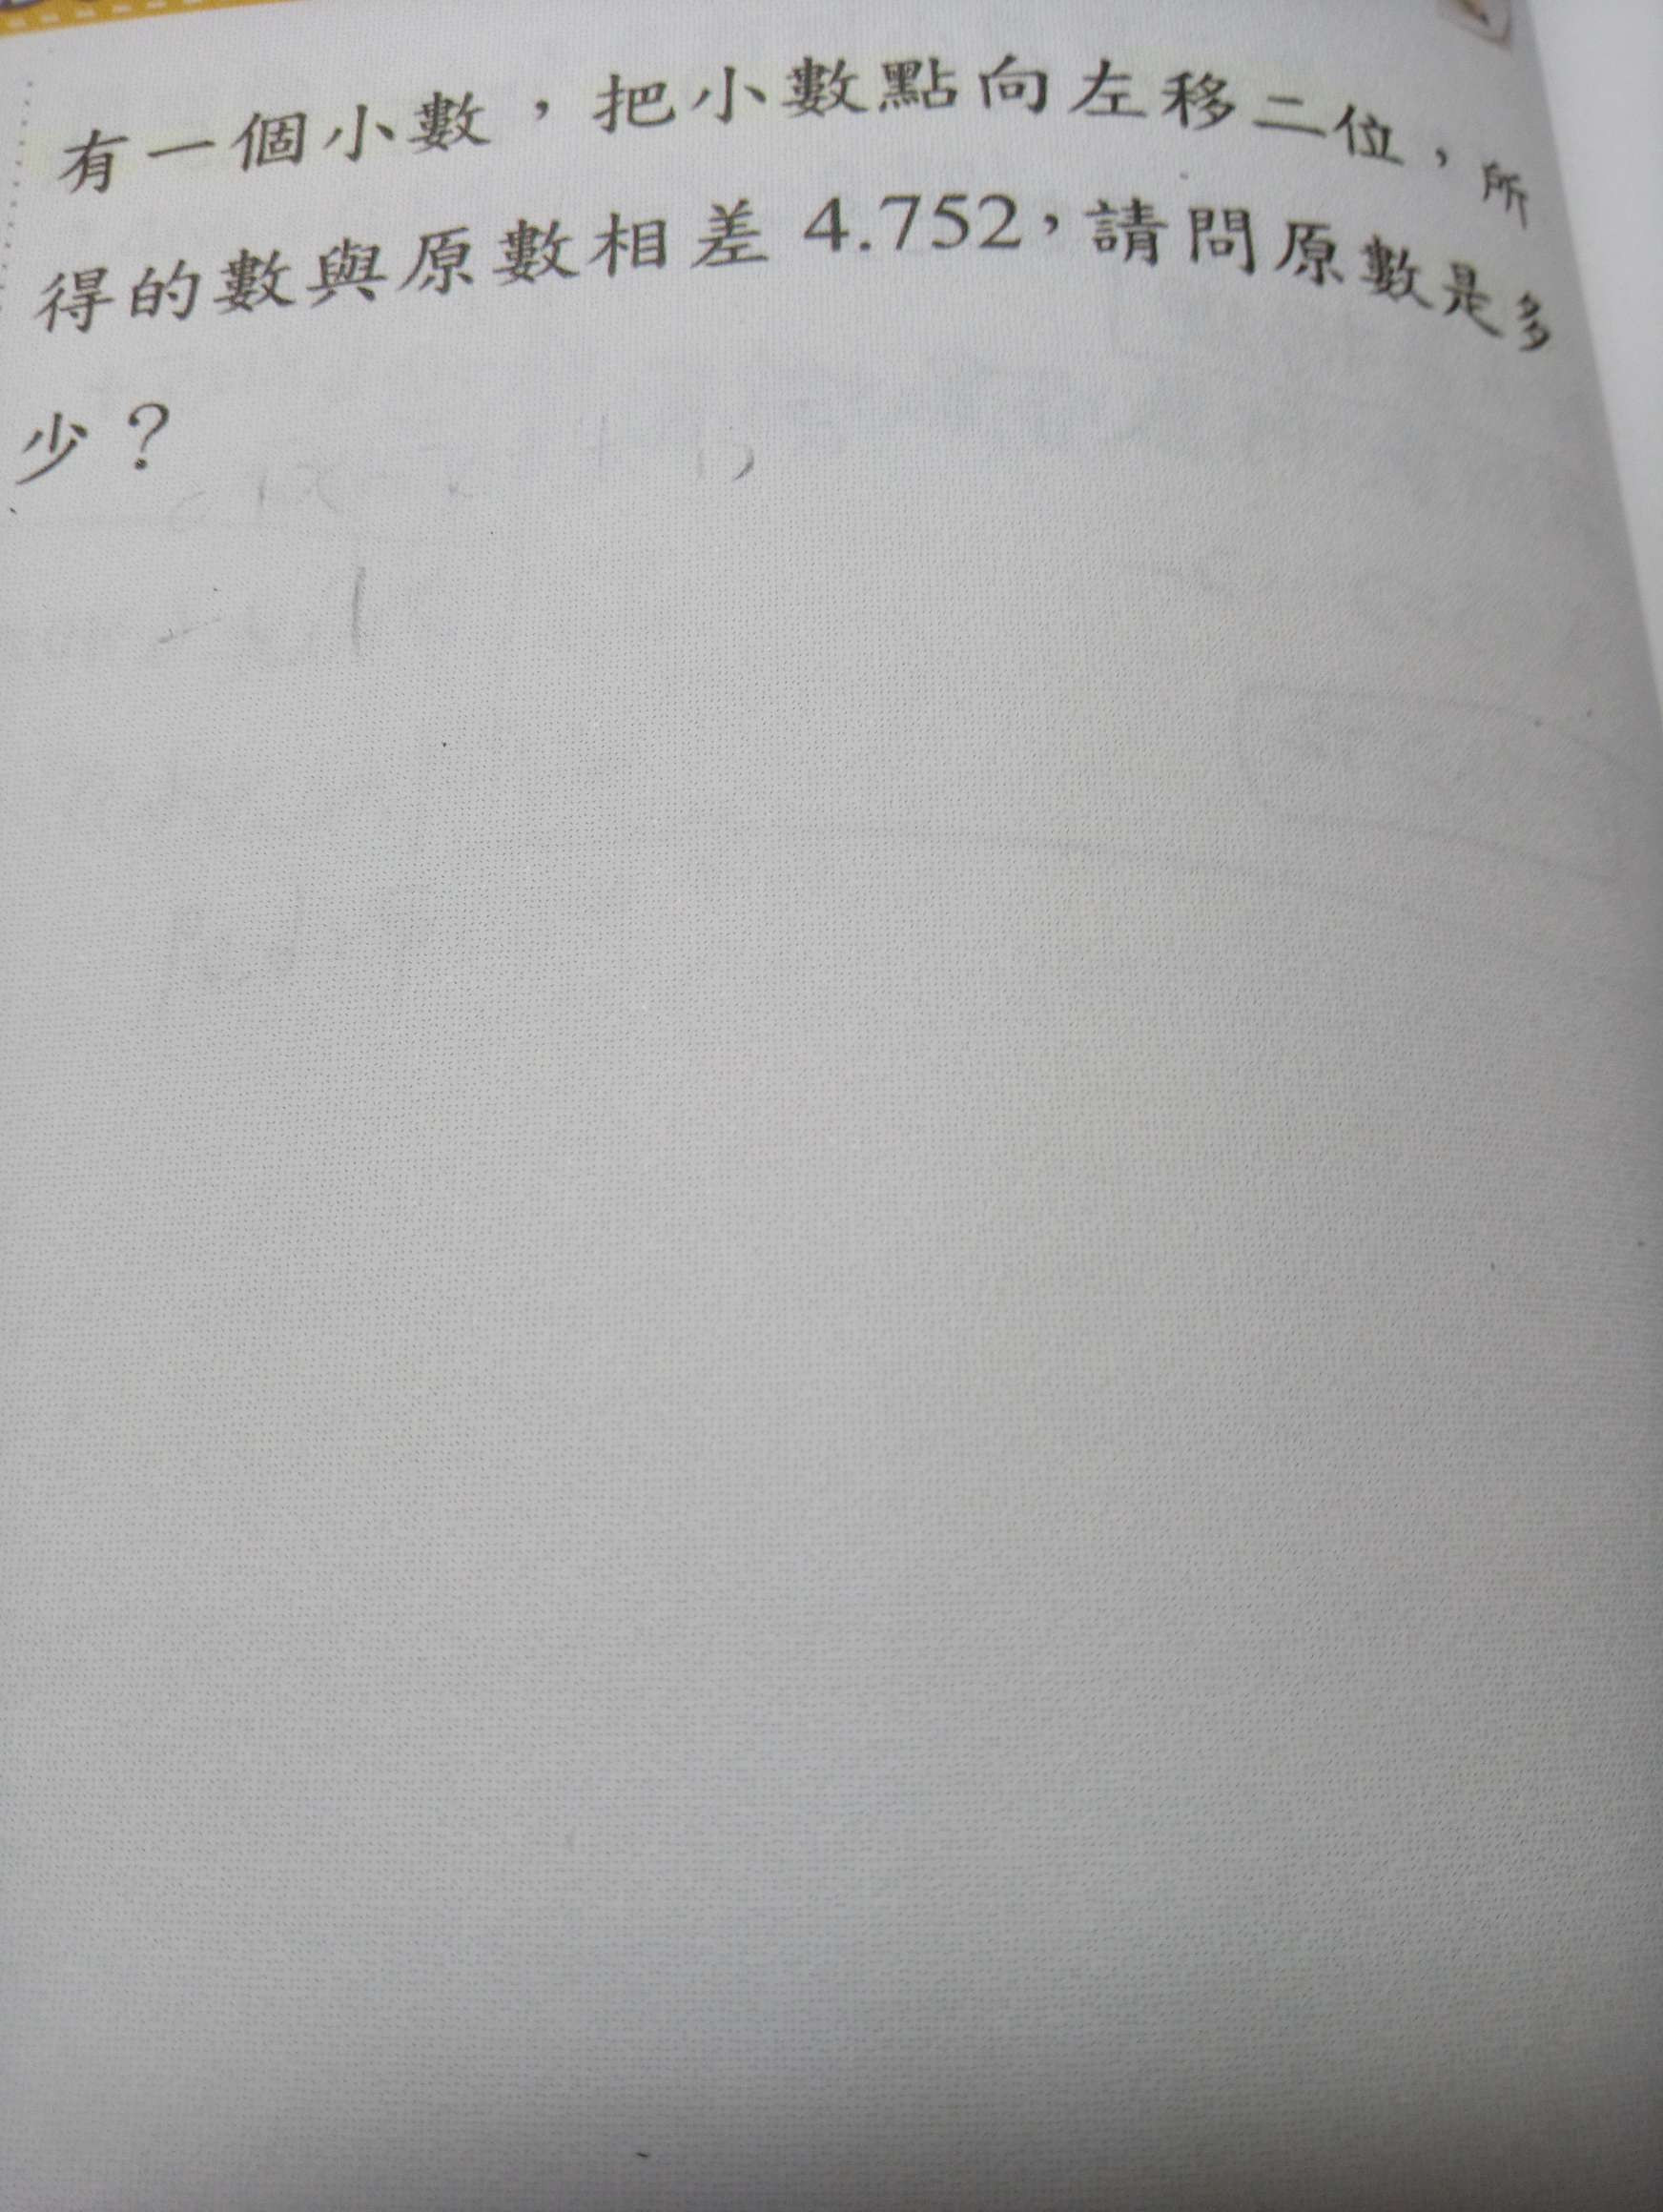 有一個小數，把小數點向左移二位，所
得的數與原數相差 4.752，請問原數是多
少？